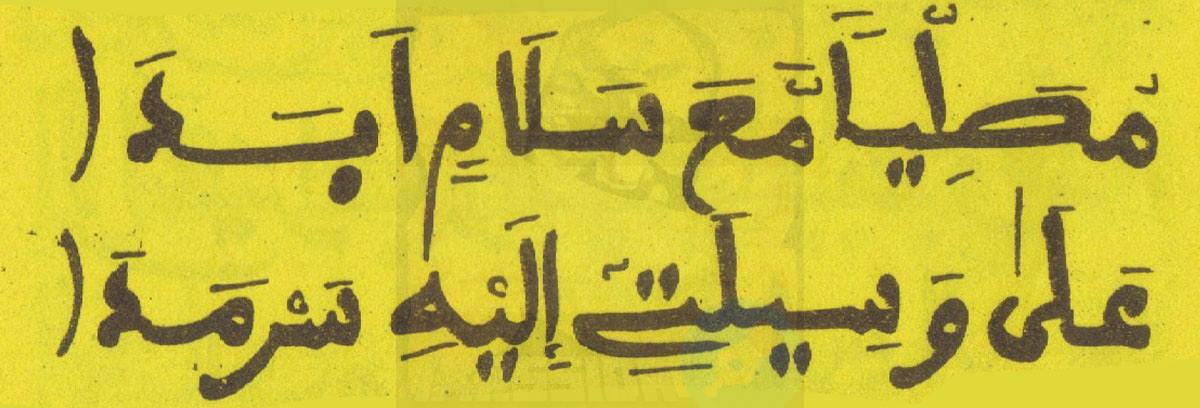 مُصَلِّياً مَّعَ سَلَامٍ اَبَدَا
عَلَى وَسِيلَتِي إِلَيْهِ سَرْمَدَا